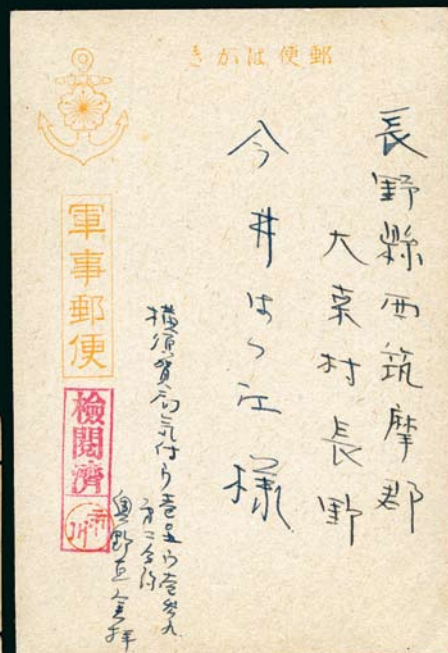 郵便はがき
長野縣西筑摩郡
大桒村長野
今井はつ江様
軍事郵便
檢閲濟
横須賀局気付ウ壱五ウ壱参九
奥野